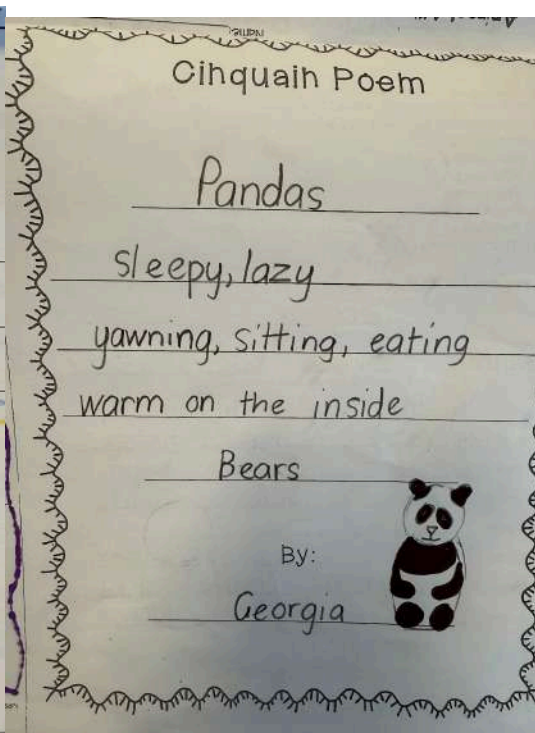 Name:
Cinquain Poem
Pandas
sleepy, lazy
yawning, sitting, eating
warm on the inside
Bears
By:
Georgia